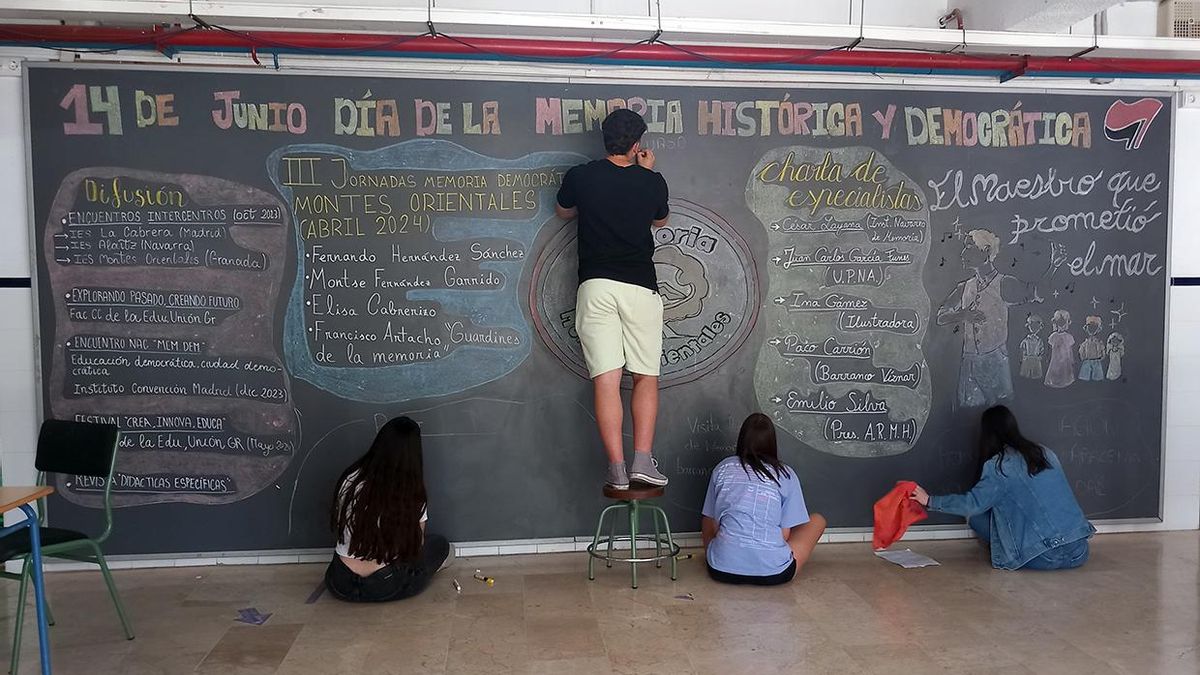 14 DE JUNIO DÍA DE LA MEMORIA HISTÓRICA Y DEMOCRÁTICA
DIFUSIÓN
• ENCUENTROS INTERCENTROS (oct 2013)
→ IES LA Cabrera (Madrid)
→ IES Alaitz (Navarra)
→ IES Montes Orientales (Granada)
• EXPLORANDO PASADO, CREANDO FUTURO
Fac CC de la Edu, Unión Gr
• ENCUENTRO NAC "MEM DEM"
Educación democrática, ciudad democrática
Instituto Convención Madrid (dic 2023)
FESTIVAL "CREA, INNOVA, EDUCA"
de la Edu, Unión, GR (Mayo
REVISTA "DIDÁCTICAS ESPECÍFICAS"
III JORNADAS MEMORIA
MONTES ORIENTALES
(ABRIL 2024)
• Fernando Hernández Sánchez
• Montse Fernández Garrido
• Elisa Cabrerizo
• Francisco Artacho "Guardines
de la memoria"
CURSO
oria
entales
Visita
charla de
especialistas
→ César Layana (Inst. Navarro
de Memoria)
→ Juan Carlos García Funes
(U.P.N.A)
→ Ina Gámez
(Ilustradora)
→ Paco Carrión
(Barranco Víznar)
→ Emilio Silva
(Pres. A.R.M.H)
El Maestro que
prometió
el mar